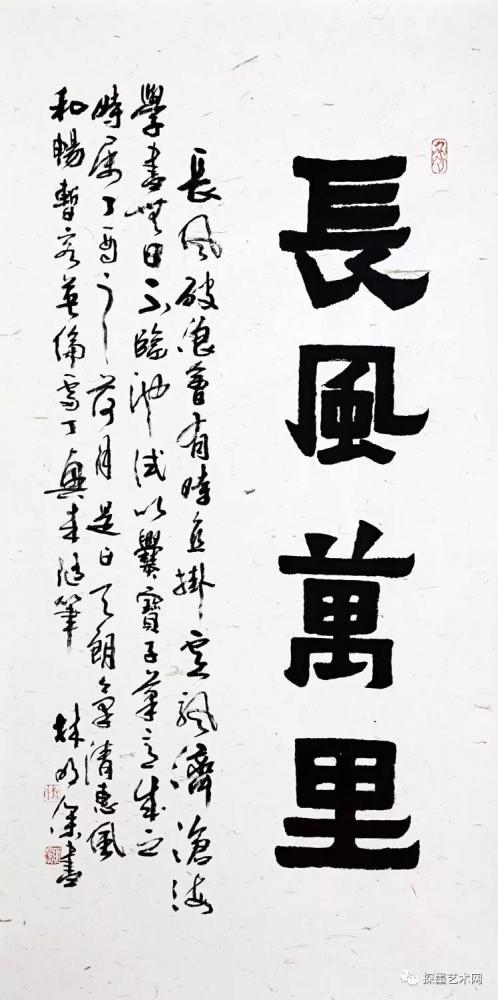 長風萬里
長風破浪會有時直掛雲帆濟滄海
學書無日不臨池試以爨寶子筆意成之
時屬丁酉之荷月是日天朗氣清惠風
和暢暫客英倫
興來隨筆
林
書
探墨艺术网